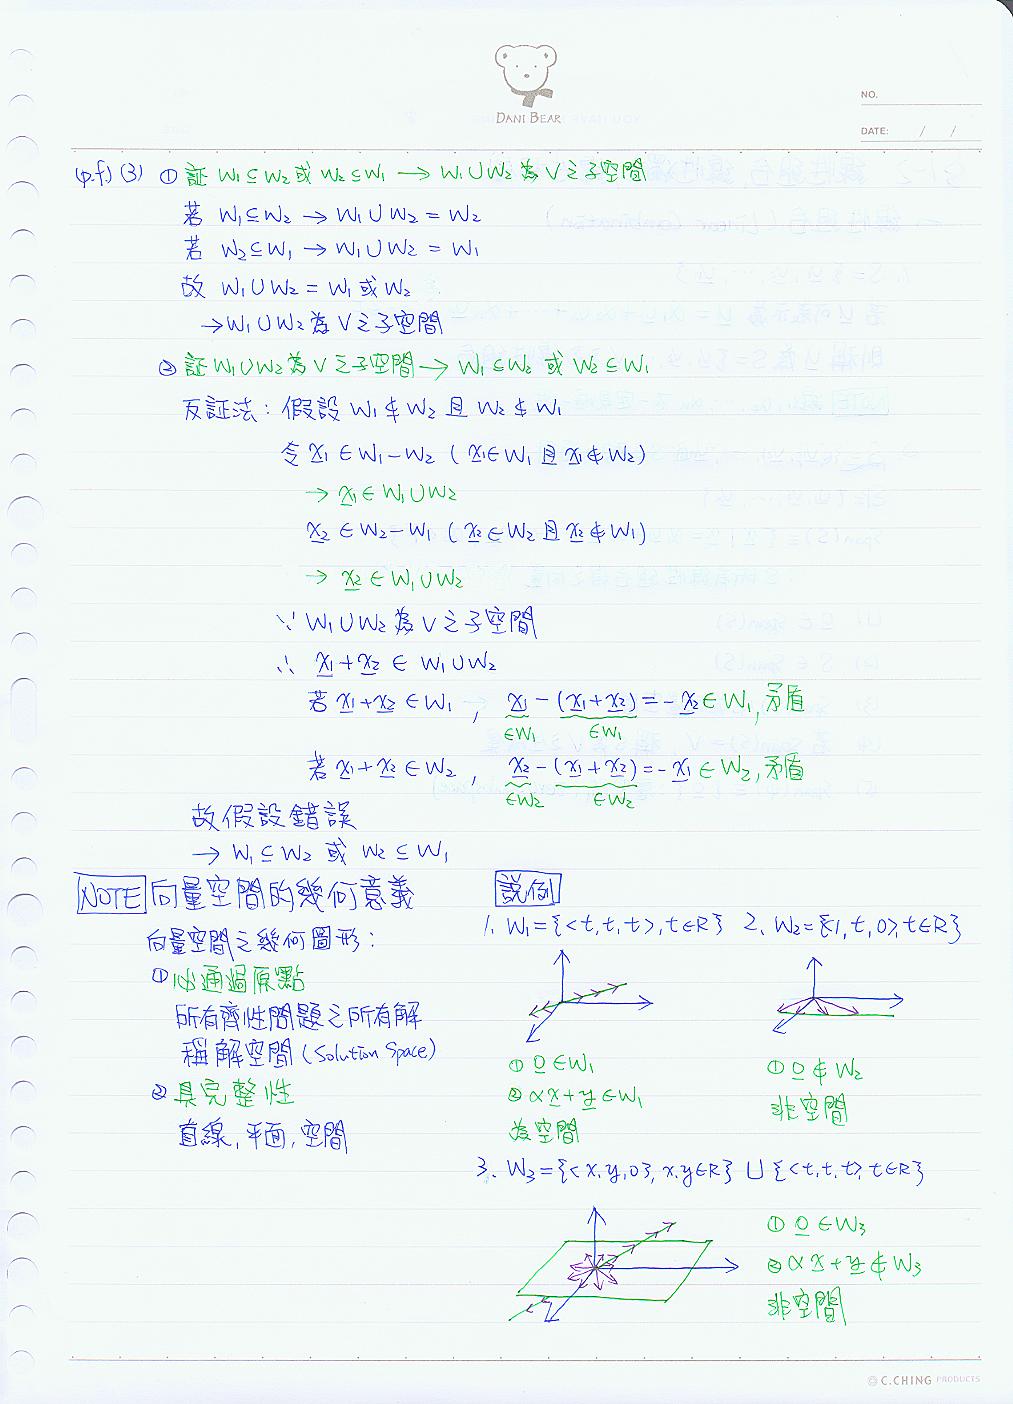 DANI BEAR
NO.
DATE: / /
(p.f) (3) ① 証 W₁⊆W₂ 或 W₂⊆W₁ → W₁∪W₂ 為 V 之子空間
若 W₁⊆W₂ → W₁∪W₂ = W₂
若 W₂⊆W₁ → W₁∪W₂ = W₁
故 W₁∪W₂ = W₁ 或 W₂
→ W₁∪W₂ 為 V 之子空間
② 証 W₁∪W₂ 為 V 之子空間 → W₁⊆W₂ 或 W₂⊆W₁
反証法: 假設 W₁⊄W₂ 且 W₂⊄W₁
令 x₁ ∈ W₁-W₂ (x₁∈W₁ 且 x₁∉W₂)
→ x₁ ∈ W₁∪W₂
x₂ ∈ W₂-W₁ (x₂∈W₂ 且 x₂∉W₁)
→ x₂ ∈ W₁∪W₂
∵ W₁∪W₂ 為 V 之子空間
∴ x₁+x₂ ∈ W₁∪W₂
若 x₁+x₂ ∈ W₁ , x₁-(x₁+x₂)=-x₂∈W₁, 矛盾
∈W₁ ∈W₁
若 x₁+x₂ ∈ W₂ , x₂-(x₁+x₂)=-x₁∈W₂, 矛盾
∈W₂ ∈W₂
故假設錯誤
→ W₁⊆W₂ 或 W₂⊆W₁
NOTE 向量空間的幾何意義
向量空間之幾何圖形:
① 必通過原點
所有齊性問題之所有解
稱解空間 (Solution Space)
② 具完整性
直線, 平面, 空間
說例
1. W₁={<t,t,t>,t∈R} 2. W₂={<1,t,0>t∈R}
① 0∈W₁
② αx+y∈W₁
為空間
① 0∉W₂
非空間
3. W₃={<x,y,0>,x,y∈R} ∪ {<t,t,t>,t∈R}
① 0∈W₃
② αx+y∉W₃
非空間
C.CHING PRODUCTS